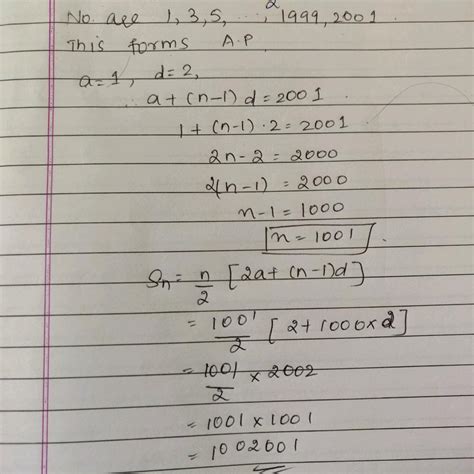 No. are 1, 3, 5, ..., 1999, 2001.
This forms A.P
a=1, d=2,
∴ a+(n-1)d=2001.
1+(n-1)·2=2001
2n-2=2000
2(n-1)=2000
n-1=1000
n=1001.
Sn= n/2 [2a+(n-1)d]
= 1001/2 [2+1000×2]
= 1001/2 × 2002
= 1001×1001
= 1002001